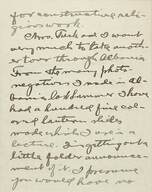 for constructive reli-
gious work.
Mrs. Peck and I want
very much to take anoth-
er tour through Albania
From the many photo
negatives I made in Al-
bania last summer I have
had a hundred fine col-
ored lantern slides
made which I use in a
lecture. I'm getting out a
little folder announce-
ment of it. I presume
you would have no